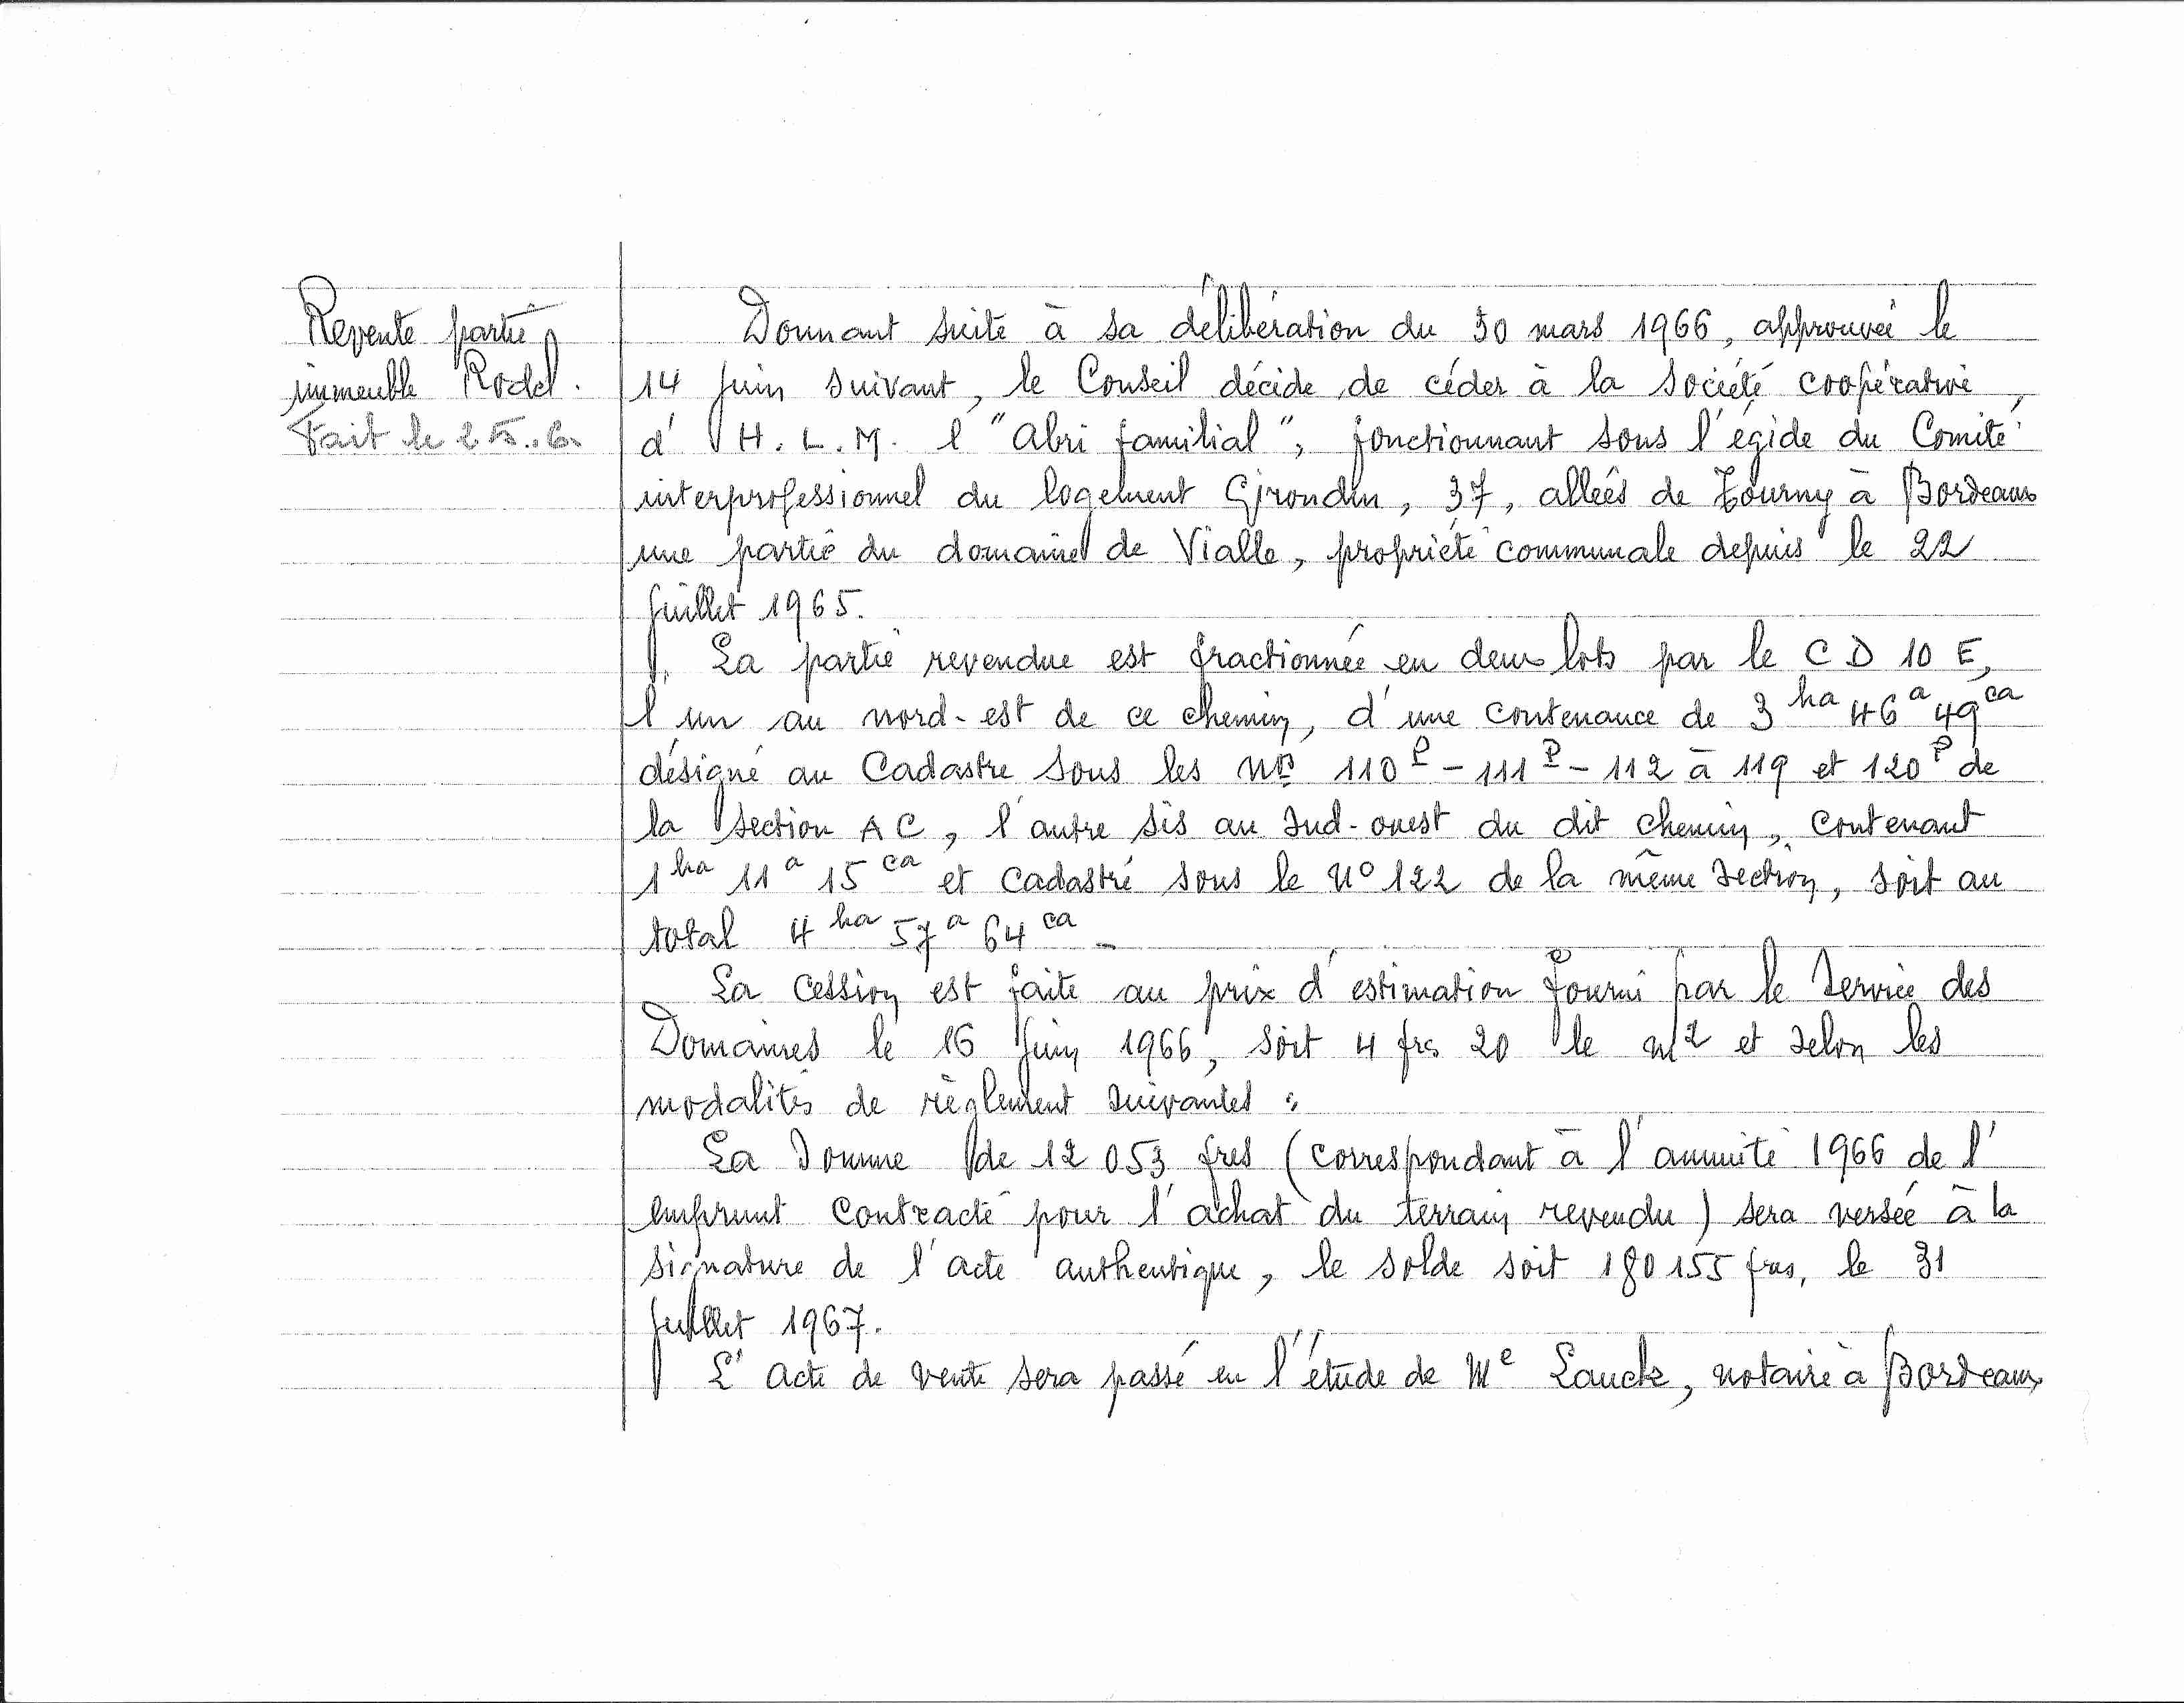 Revente partie
immeuble Rodel.
Fait le 25..6.
Donnant suite à sa délibération du 30 mars 1966, approuvée le
14 juin suivant, le Conseil décide de céder à la société coopérative
d'H.L.M. l'"Abri familial", fonctionnant sous l'égide du Comité
interprofessionnel du logement Girondin, 37, allées de Tourny à Bordeaux
une partie du domaine de Vialle, propriété communale depuis le 22
juillet 1965.
La partie revendue est fractionnée en deux lots par le C D 10 E,
l'un au nord-est de ce chemin, d'une contenance de 3 ha 46 a 49 ca
désigné au Cadastre sous les nos 110 P - 111 P - 112 à 119 et 120 P de
la section AC, l'autre sis au sud-ouest du dit chemin, contenant
1 ha 11 a 15 ca et cadastré sous le n° 122 de la même section, soit au
total 4 ha 57 a 64 ca -
La cession est faite au prix d'estimation fourni par le Service des
Domaines le 16 juin 1966, soit 4 frs 20 le m2 et selon les
modalités de règlement suivantes :
La somme de 12 053 frcs (correspondant à l'annuité 1966 de l'
emprunt contracté pour l'achat du terrain revendu) sera versée à la
signature de l'acte authentique, le solde soit 180 155 frcs, le 31
juillet 1967.
L'acte de vente sera passé en l'étude de Me Lauck, notaire à Bordeaux